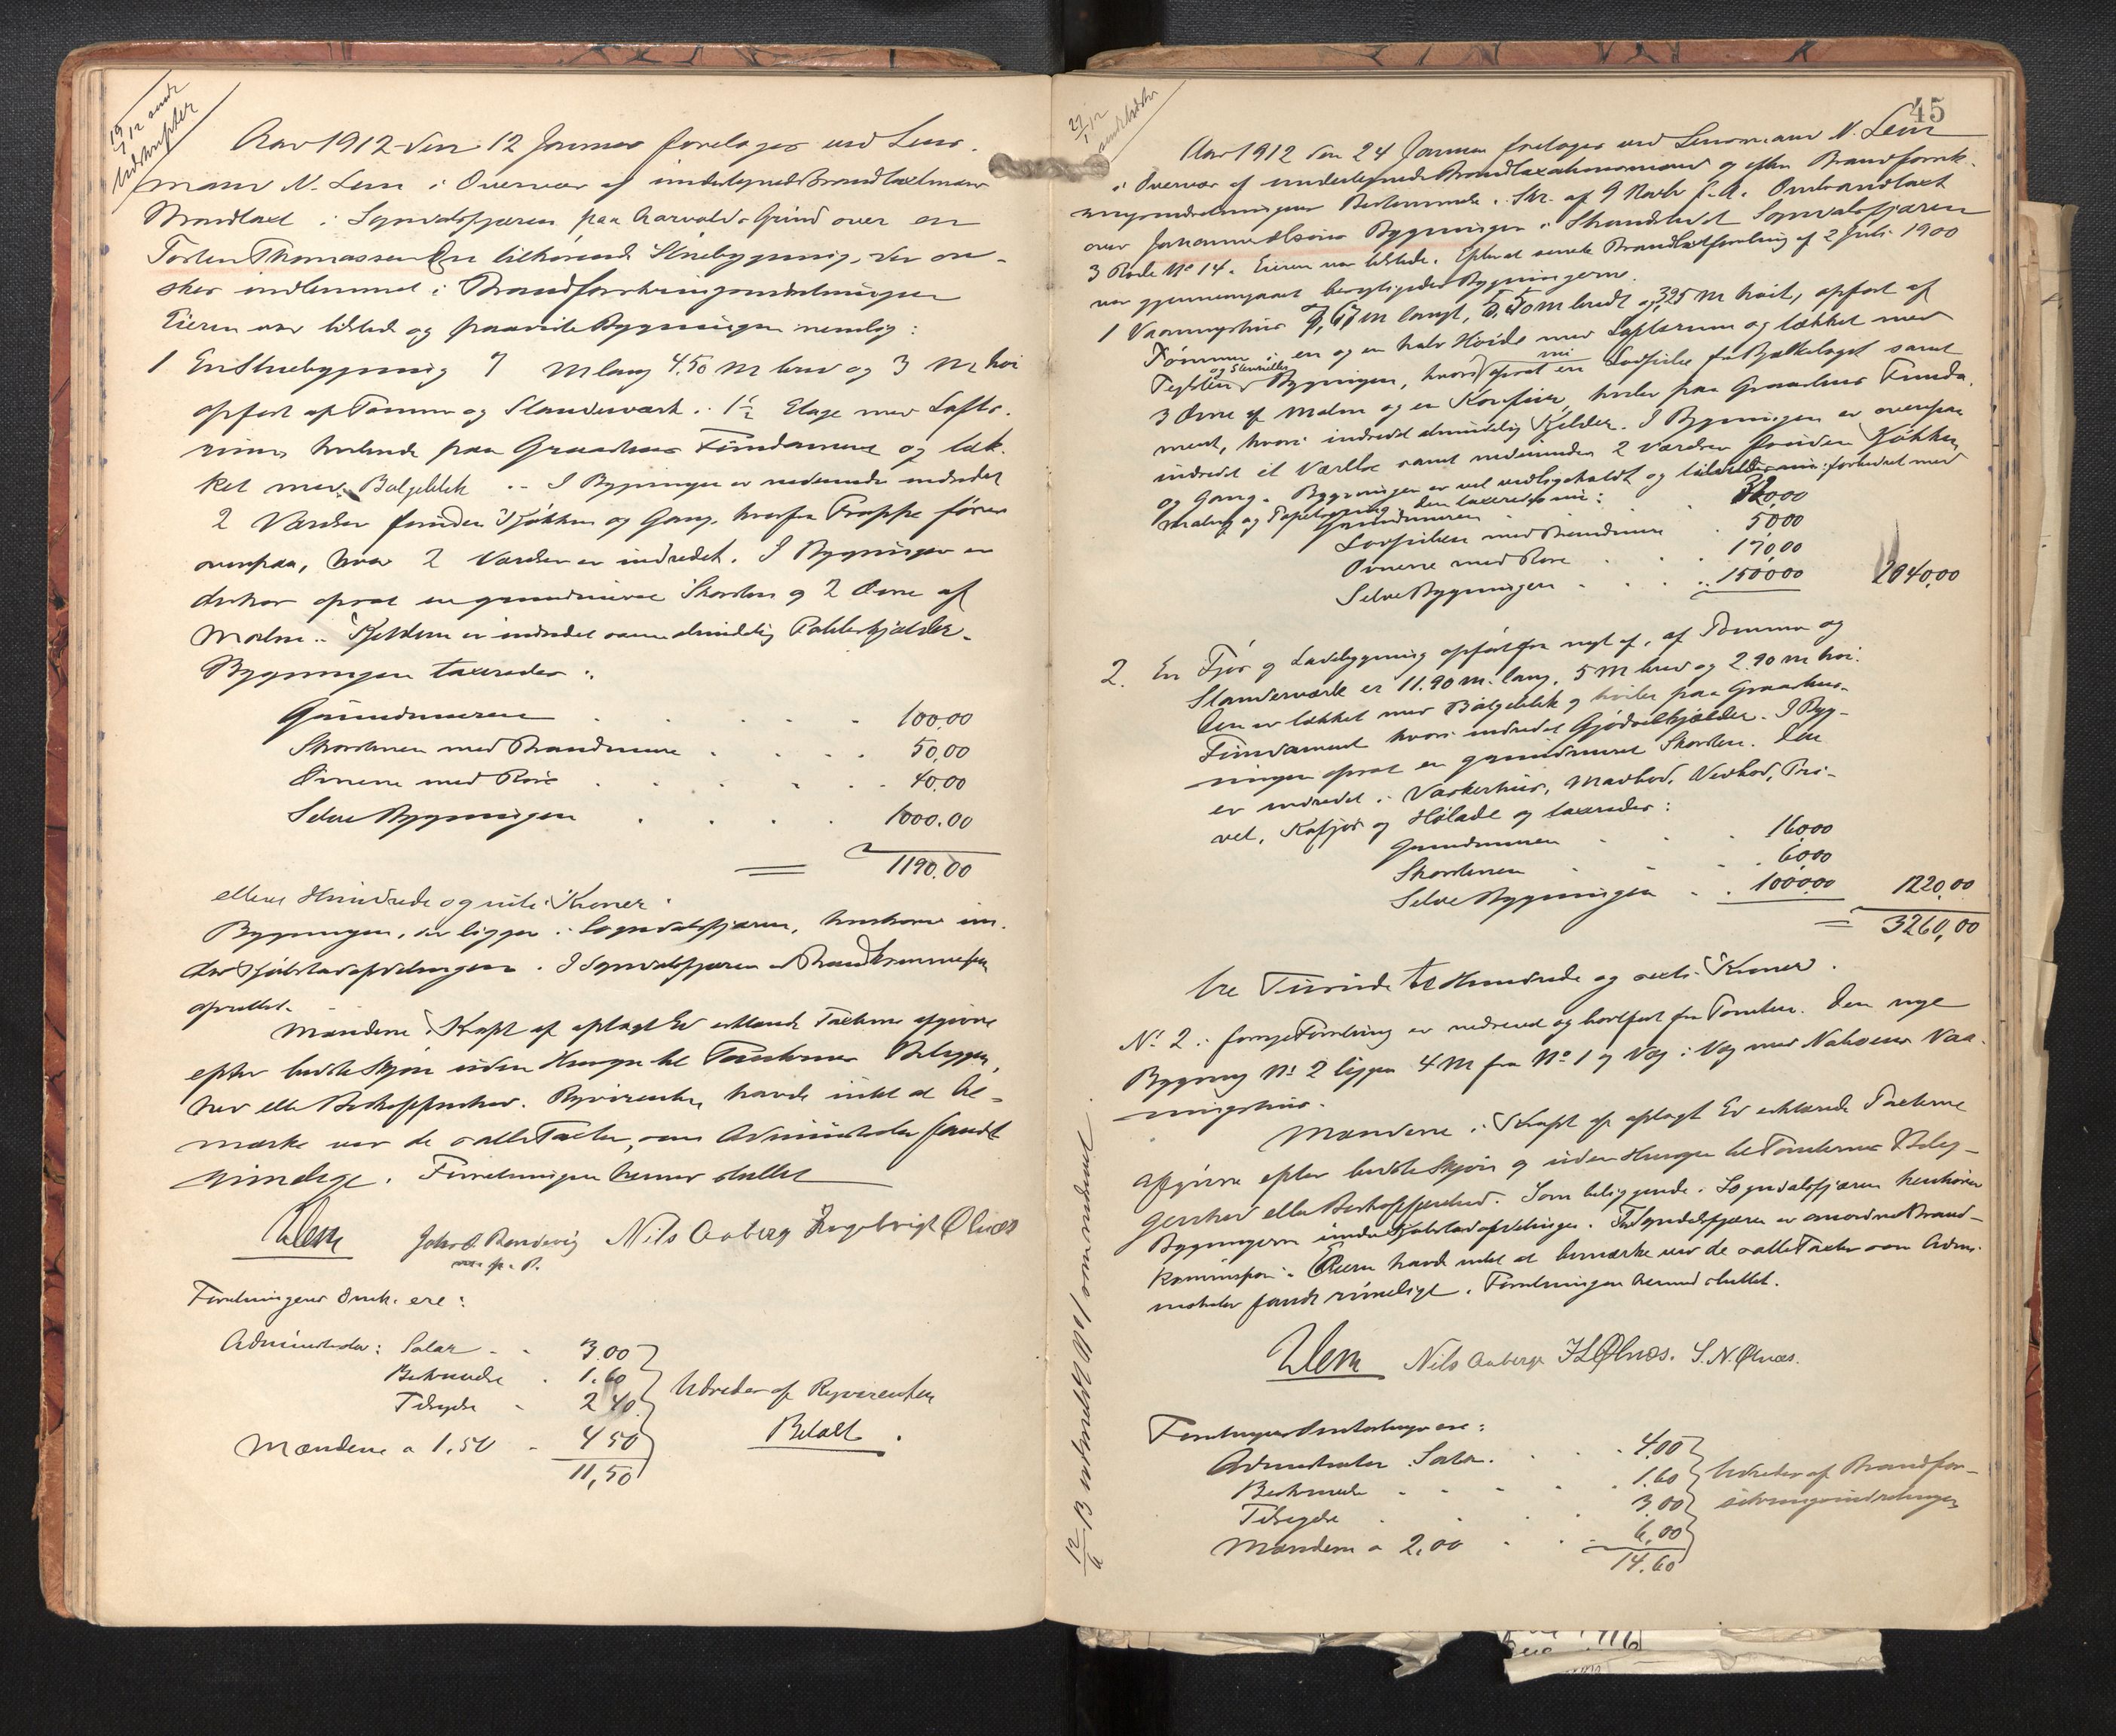 19/1 12 sendt
Udskrifter
Aar 1912 den 12 Januar foretoges ved Lens-
mand N. Lem i Overvær af undertegnede Brandtaxtmænd
Brandtaxt i Sogndalsfjæren paa Harvalds Grund over en
Torsten Thomassen tilhørende Stuebygning, der øn-
skes indlemmet i Brandforsikringsindretningen
Eieren var tilsted og paaviste Bygningen nemlig:
1 En Stuebygning 7 M lang 4.50 M bred og 3 M høi
opført af Tømmer og Stænderværk i 1½ Etage med Lofts-
rum, hvilende paa Graastens Fundament og tæk-
ket med Bølgeblik. I Bygningen er nedenunder indredet
2 Værelser foruden Kjøkken og Gang, hvorfra Trappe fører
ovenpaa, hvor 2 Værelser er indredet. I Bygningen er
desuden opsat en grundmuret Skorsten og 2 Ovne af
Malm. Kjelderen er indredet som almindelig Potetkjælder.
Bygningen taxeredes:
Grundmuren 100.00
Skorstenen med Brandmure 50,00
Ovnene med Rør 40.00
Selve Bygningen 1000.00
1190.00
elleve Hundrede og nitti Kroner.
Bygningen, der ligger i Sogndalsfjæren, henhører un-
der Kjøbstadafdelingen. I Sogndalsfjæren er Brandkommission
oprettet.
Mændene i Kraft af aflagt Ed erklærede Taxterne afgivne
efter bedste Skjøn uden Hensyn til Tomternes Beliggen-
hed eller Beskaffenhed. Rekvirenten havde intet at be-
mærke ved de satte Taxter, som Administrator fandt
rimelige. Forretningen hermed sluttet
NLem John O. Rendevig Nils Aaberg Ingebrigt Ølnæs
m. p. P.
Forretningens Omk. ere:
Administrator: Salær 3.00
Beskrivelse 1.60
Tilsyelse 2 40
Mændene a 1.50 4 50
11,50
Udredes af Rekvirenten
Betalt.
45
27/1 12
sendt Udskr
Aar 1912 den 24 Januar foretoges ved Lensmand N. Lem
i Overvær af undertegnede Brandtaxationsmænd og efter Brandforsik-
ringsindretningens Bestemmelse i Skr. af 9 Novbr f. A. Ombrandtaxt
over Johannes Olsens Bygninger i Strandstedet Sogndalsfjæren
3 Rode No 14. Eieren var tilstede. Efterat seneste Brandtaxtforretning af 2 Juli 1900
var gjennemgaaet besigtigedes Bygningerne.
1 Vaaningshus 7,67 m langt, 5,50 m bredt og 3,25 m høit, opført af
Tømmer i en og en halv Høide med Loftsrum og tækket med
Teglsten og Stenheller. Bygningen, hvori opsat en ny Lodpibe fra Bjelkelaget samt
3 Ovne af Malm og en Komfur, hviler paa Graastens Funda-
ment, hvori indredet almindelig Kjelder. I Bygningen er ovenpaa
indredet et Værelse samt nedenunder 2 Værelser foruden Kjøkken
og Gang. Bygningen er vel vedligeholdt og forbedret med
Maling og Tapetsering. Den taxeredes nu:
Grundmuren 320,00
Lodpiben med Brandmure 50,00
Ovnene med Rør 170,00
Selve Bygningen 1500.00 2040,00
2. En Fjøs og Ladebygning opført fra nyt af, af Tømmer og
Stænderværk er 11.90 m. lang, 5 M bred og 2.90 m høi.
Den er tækket med Bølgeblik og hviler paa Graastens-
Fundament hvori indredet Gjødselkjælder. I Byg-
ningen opsat en grundmuret Skorsten. Den
er indredet i Vaskerhus, Madbod, Vedbod, Pri-
vet, Kufjøs og Hølade og taxeredes:
Grundmuren 160,00
Skorstenen 60,00
Selve Bygningen 1000,00 1220,00
3260,00
tre Tusinde to Hundrede og seksti Kroner.
No 2 i forrige Forretning er nedrevet og bortført fra Tomten. Den nye
Bygning No 2 ligger 4 M fra No 1 og Væg i Væg med Naboens Vaa-
ningshus.
Mændene i Kraft af aflagt Ed erklærede Taxterne
afgivne efter bedste Skjøn og uden Hensyn til Tomternes Belig-
genhed eller Beskaffenhed. Som beliggende i Sogndalsfjæren henhører
Bygningerne under Kjøbstadafdelingen. I Sogndalsfjæren er anordnet Brand-
kommission. Eieren havde intet at bemærke ved de satte Taxter som Admi-
nistrator fandt rimeligt. Forretningen hermed sluttet.
NLem Nils Aaberge I L Ølnæs. S. N. Ølnæs.
Forretningens Omkostninger ere:
Administrator Salær 4,00
Beskrivelse 1.60
Tilsyelse 3.00
Mændene a 2,00 6,00
14.60
Udredes af Brandfor-
sikringsindretningen
12/6 13